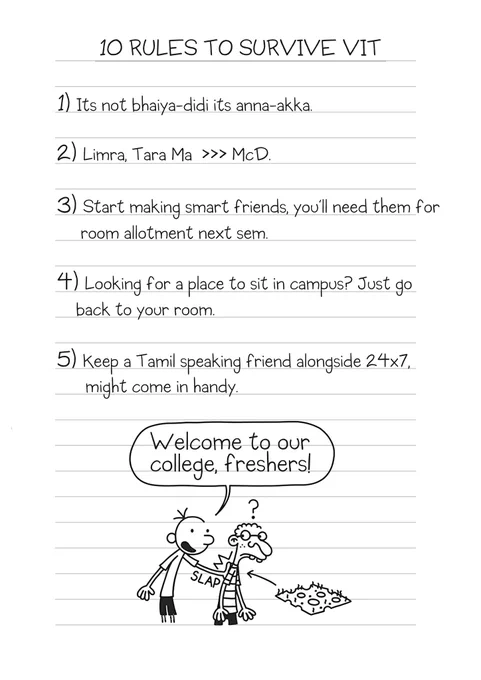 10 RULES TO SURVIVE VIT
1) Its not bhaiya-didi its anna-akka.
2) Limra, Tara Ma >>> McD.
3) Start making smart friends, you'll need them for
room allotment next sem.
4) Looking for a place to sit in campus? Just go
back to your room.
5) Keep a Tamil speaking friend alongside 24x7,
might come in handy.
Welcome to our
college, freshers!
?
SLAP